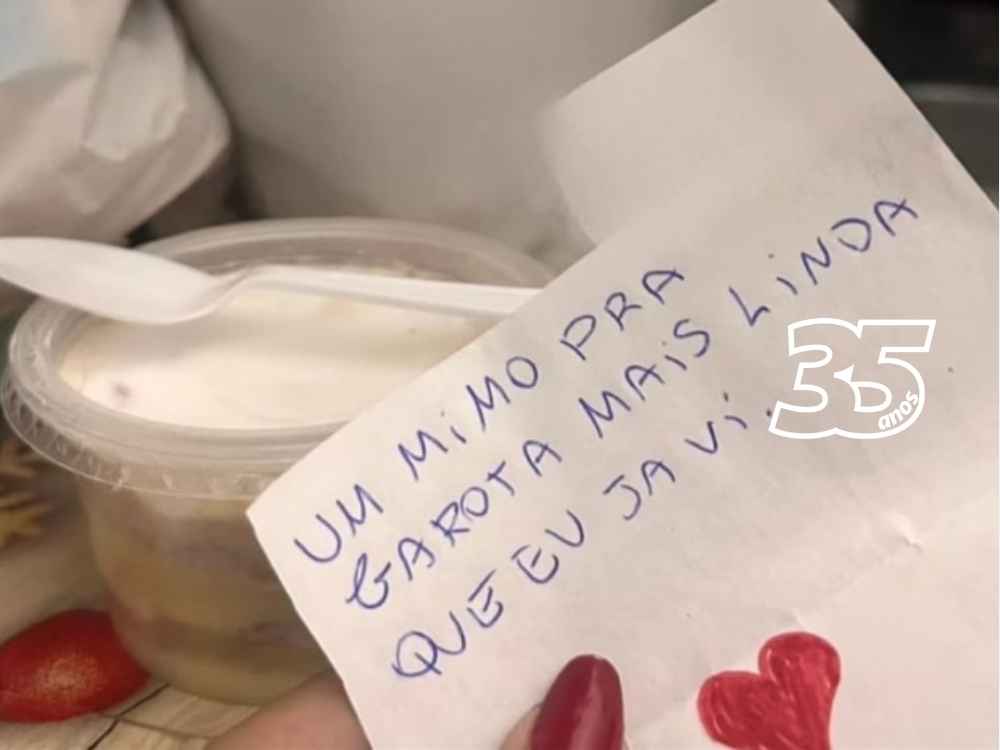 UM MiMO PRA
GAROTA MAiS LiNDA
QUE EU JA Vi.
35
anos